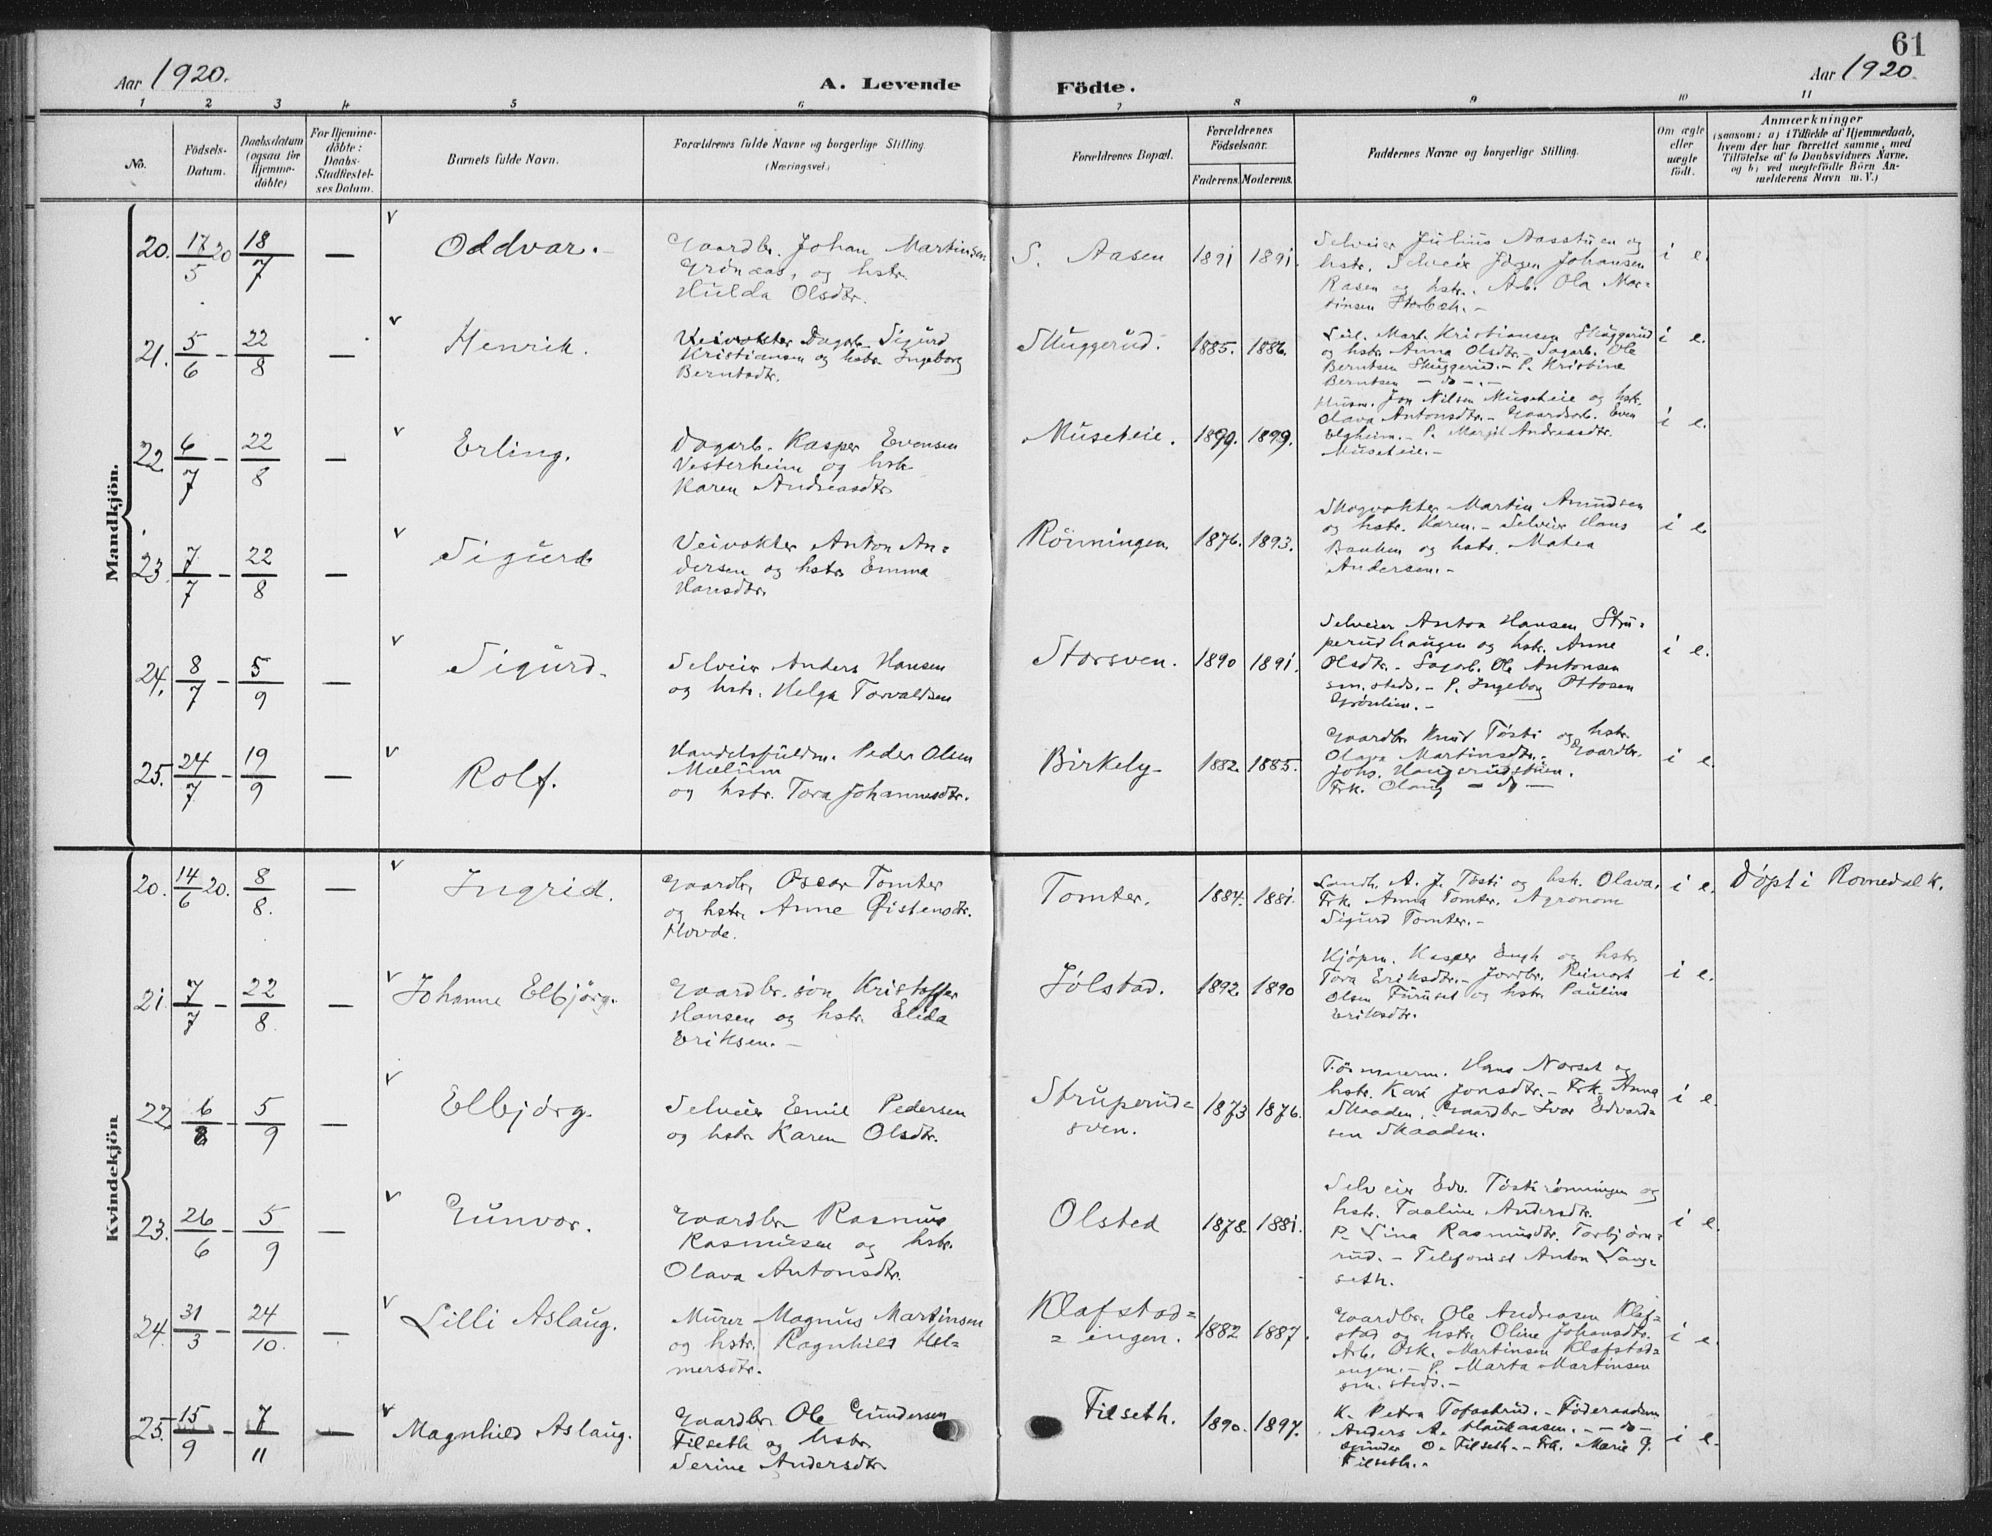 61
Aar 1920.
A. Levende
Födte.
Aar 1920
1 2 3 4 5 6 7 8 9 10 11
No.
Födsels-
Datum.
Daabsdatum
(ogsaa for
Hjemme-
döbte)
For Hjemme-
döbte:
Daabs-
Stadfæstel-
ses Datum.
Barnets fulde Navn.
Forældrenes fulde Navne og borgerlige Stilling.
(Næringsvei.)
Forældrenes Bopæl.
Forældrenes
Födselsaar.
Faderens. Moderens.
Faddernes Navne og borgerlige Stilling.
Om ægte
eller
uægte
födt.
Anmærkninger
(saasom: a) i Tilfælde af Hjemmedaab,
hvem der har forrettet samme, med
Tilföielse af to Daabsvidners Navne,
og b) ved uægtefödte Börn An-
melderens Navn m. V.)
Mandkjön.
20. 17/5 20 18/7 — Oddvar.
Gaardbr. Johan Martinsen
Grönaas, og hstr.
Hulda Olsdtr.
S. Aasen 1891 1891.
Selveier Julius Aasstuen og
hstr. Selveier Jörgen Johansen
Aasen og hstr. Arb. Ola Mar-
tinsen
i e.
21. 5/6 - 22/8 — Henrik.
Veivokter Dagarb. Sigurd
Kristiansen og hstr. Ingeborg
Berntsdtr.
Skuggerud. 1885. 1886.
Mart. Kristiansen Skuggerud
og hstr. Anna Olsdtr. - Sagarb. Ole
Berntsen Skuggerud. - P. Kristine
Berntsen — do —
i e.
22. 6/7 - 22/8 — Erling.
Dagarb. Kasper Evensen
Vesterheim og hstr.
Karen Andreasdtr
Museteie. 1899. 1899.
Husm. Jon Nilsen Museteie og hstr.
Olava Antonsdtr. - Gaardsarb. Even
Elgheim. - P. Margit Andreasdtr.
Museteie. -
i e.
23. 7/7 - 22/8 — Sigurd
Veivokter Anton An-
dersen og hstr. Emma
Hansdtr.
Rönningen 1876. 1893.
Skogvokter Martin Amundsen
og hstr. Karen. - Selveier Hans
Bauken og hstr. Matea
Andersen. -
i e.
24. 8/7 - 5/9 — Sigurd.
Selveier Anders Hansen
og hstr. Helga Torvaldsen
Storsven. 1890 1891.
Selveier Anton Hansen Stru-
perudhaugen og hstr. Anne
Olsdtr. - Sagarb. Ole Antonsen
sm.steds. - P. Ingeborg Ottosen
Grönlien. -
i e.
25. 24/7 - 19/9 — Rolf.
Handelsfuldm. Peder Olsen
Mælum
og hstr. Tora Johannesdtr.
Birkely 1882. 1885.
Gaardbr. Knud Tösti og hstr.
Olava Martinsdtr. - Gaardbr.
Johs. Haugerudstuen.
Frk. Olaug — do —
i e.
Kvindekjön
20. 14/6 20. 8/8. — Ingrid.
Gaardbr. Oscar Tomter
og hstr. Anne Øistensdtr.
Hovde.
Tomter. 1884. 1881.
Landh. A. J. Tösti og hstr. Olava.
Frk. Anna Tomter. Agronom
Sigurd Tomter. -
i e. Döpt i Romedal k.
21. 7/7 - 22/8. — Johanne Elbjörg.
Gaardbr. sön Kristoffer
Hansen og hstr. Elida
Eriksen. -
Jölstad. 1892. 1890
Kjöpm. Kasper Engh og hstr.
Tora Eriksdtr. - Jordbr. Reinert
Olsen Furuset og hstr. Pauline
Eriksdtr.
i e.
22. 6/8 - 5/9 — Elbjörg.
Selveier Emil Pedersen
og hstr. Karen Olsdtr.
Struperud-
sven. 1873 1876.
Tömmerm. Hans Norset og
hstr. Kari Jonsdtr. - Frk. Anna
Skaaden. Gaardbr. Ivar Edvard-
sen Skaaden.
i e.
23. 26/6 - 5/9 — Gunvor.
Gaardbr. Rasmus
Rasmusen og hstr.
Olava Antonsdtr.
Olsted 1878. 1881.
Selveier Edv. Töstirönningen og
hstr. Taaline Andersdtr.
P. Lina Rasmusdtr. Torbjörn-
rud. - Telefonist Anton Lang-
seth.
i e.
24. 31/3 - 24/10. — Lilli Aslaug.
Murer Magnus Martinsen
og hstr. Ragnhild Hel-
mersdtr.
Klafstad-
- engen. 1882 1887.
Gaardbr. Ole Andreasen Klaf-
stad og hstr. Oline Johansdtr.
Arb. Osk. Martinsen Klafstad-
engen. - P. Marta Martinsen
sm. steds. -
i e.
25. 15/9 - 7/11 — Magnhild Aslaug.
Gaardbr. Ole Gundersen
Filseth og hstr.
Serine Andersdtr.
Filseth. 1890. 1897.
K. Petra Tofastrud. - Föderaadsm.
Anders A. Haukaasen. - — do —
Gunder O. Filseth. - Frk. Marie G.
Filseth. -
i e.